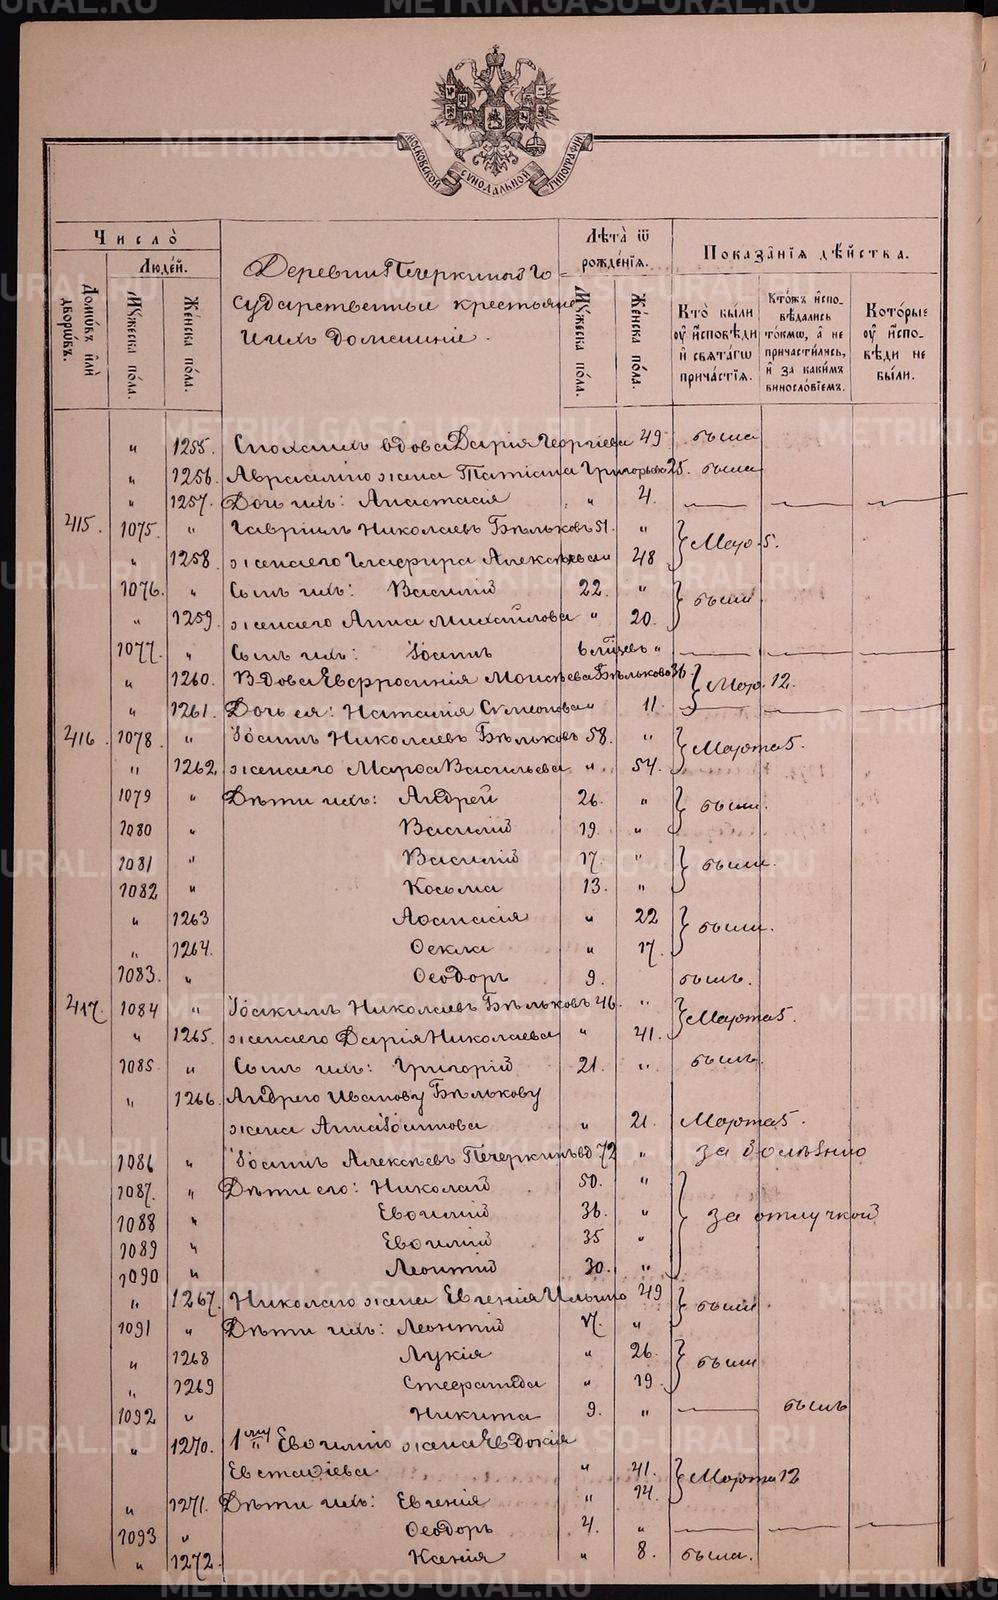 METRIKI.GASO-URAL.RU
МОСКОВСКОЙ СѴНОДАЛЬНОЙ ТИПОГРАФІИ
Число̀
Домѡвъ и҆лѝ дворѡвъ.
Людей.
Мꙋжеска по́ла.
Женска по́ла.
Деревни Печеркиной Го
сударственные крестьяне
и ихъ домашніе.
Лѣта̀ ѿ рожде́нїѧ.
Мꙋжеска по́ла.
Женска по́ла.
Показа̑нїѧ дѣ́йства.
Кто̀ бы́ли оу҆ и҆сповѣ́ди и҆ свѧта́гѡ прича́стїѧ.
Кто́жъ и҆спо-вѣдались то́кмѡ, а҆ не причасти́лись, и҆ за каки́мъ винослові́емъ.
Кото́рые оу҆ и҆спо-вѣ́ди не бы́ли.
" 1255. Снохаихъ вдова Дарія Георгіева 49 была
" 1256. Авраамію жена Татіана Григорьева 25. была
" 1257. Дочь ихъ: Анастасія " 4.
415. 1075. " Гавріилъ Николаевъ Бѣльковъ 51. " Мар. 5.
" 1258. жена его Глафира Алексѣева 48
1076. " Сынъ ихъ: Василій 22. " были
" 1259. жена его Анна Михайлова " 20.
1077. " Сынъ ихъ: Іоаннъ 6 мѣсяцевъ "
" 1260. Вдова Евфросинія Моисѣева Бѣлькова 36 Мар. 12.
" 1261. Дочь ея: Наталія Симеонова " 11.
416. 1078. " Іоаннъ Николаевъ Бѣльковъ 58. " Марта 5.
" 1262. жена его Марѳа Васильева " 54.
1079 " Дѣти ихъ: Андрей 26. " были.
1080 " Василій 19. "
1081 " Василій 17. " были.
1082 " Косьма 13. "
" 1263 Аѳанасія " 22 были.
" 1264. Ѳекла " 17.
1083. " Ѳеодоръ 9. былъ.
417. 1084 " Іоакимъ Николаевъ Бѣльковъ 46. " Марта 5.
" 1265. жена его Дарія Николаева " 41.
1085 " Сынъ ихъ: Григорій 21. " былъ.
" 1266. Андрею Иванову Бѣлькову
жена Анна Іоаннова " 21. Марта 5.
1086 " Іоаннъ Алексѣевъ Печеркинъ вд 72 " за болѣзнію
1087. " Дѣти его: Николай 50. "
1088 " Евѳимій 36. " за отлучкой
1089 " Евѳимій 35 "
1090 " Леонтій 30. "
" 1267. Николаю жена Евгенія Ильина 49 были
1091 " Дѣти ихъ: Леонтій 17. "
" 1268 Лукія " 26. были
" 1269 Стефанида " 19.
1092 " Никита 9. " былъ
" 1270. 1му Евѳимію жена Евдокія
Евстаѳіева " 41. Марта 12
" 1271. Дѣти ихъ: Евгенія " 14.
1093 " Ѳеодоръ 4. "
" 1272. Ксенія " 8. была.